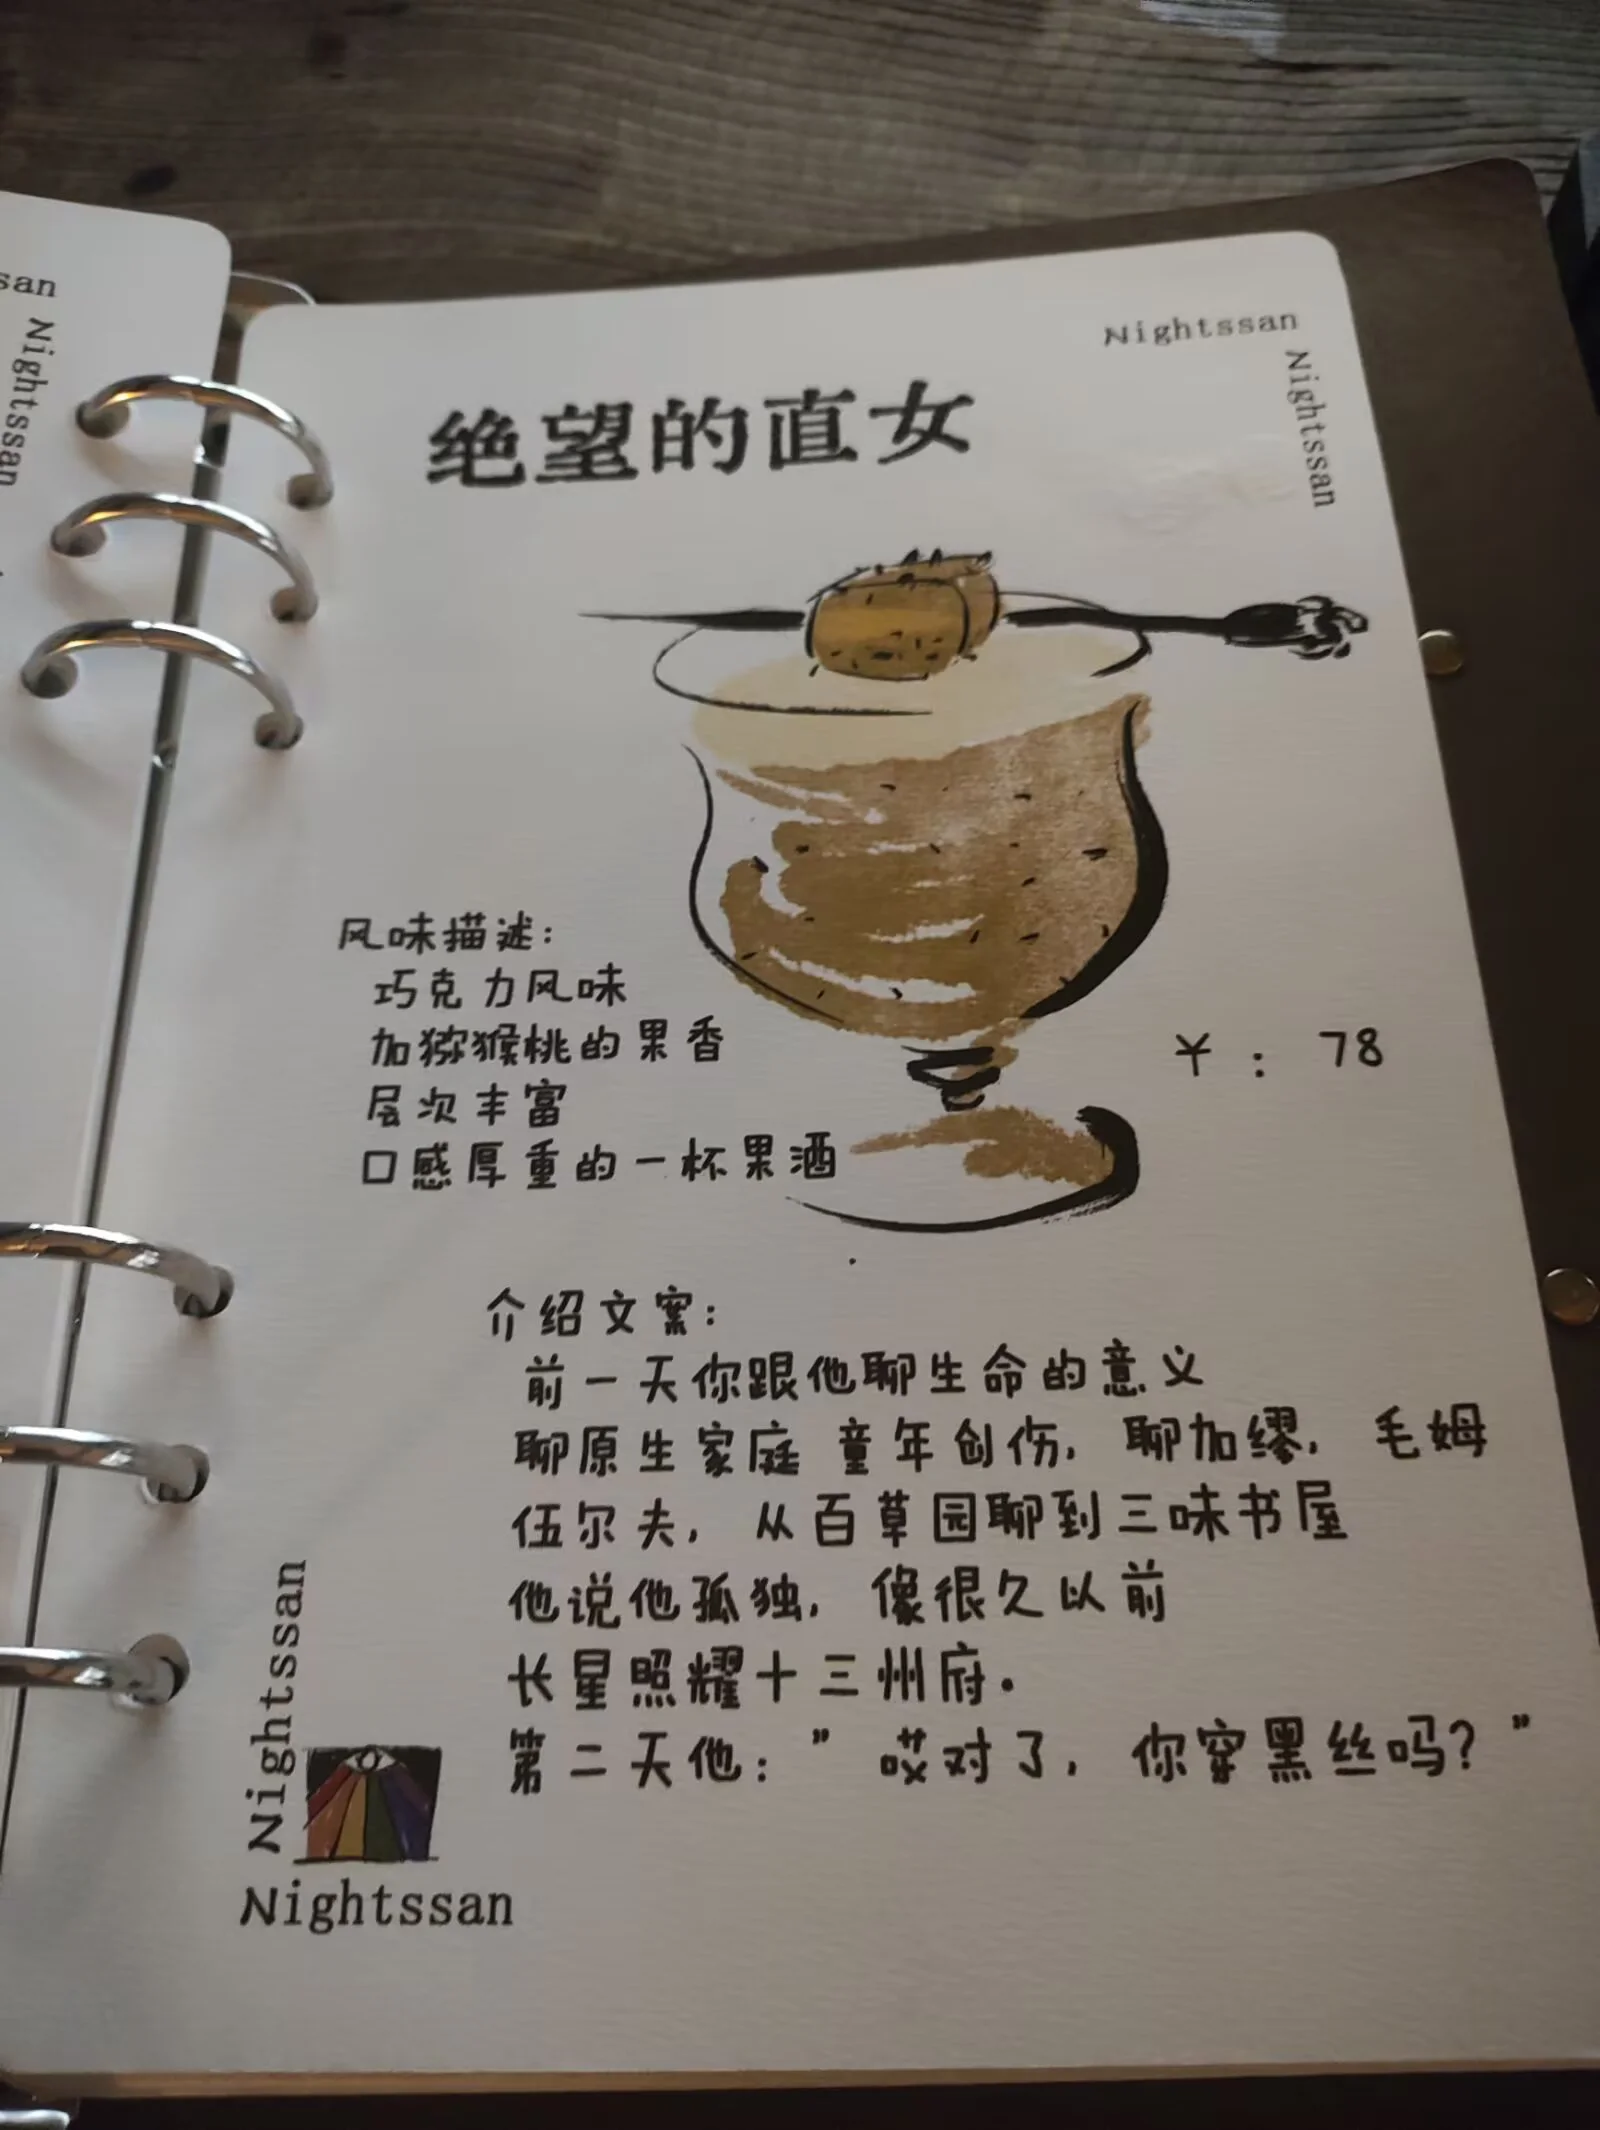 san
Nightssan
Nightssan
Nightssan
绝望的直女
风味描述：
巧克力风味
加猕猴桃的果香
层次丰富
口感厚重的一杯果酒
￥：78
介绍文案：
前一天你跟他聊生命的意义
聊原生家庭 童年创伤，聊加缪，毛姆
伍尔夫，从百草园聊到三味书屋
他说他孤独，像很久以前
长星照耀十三州府。
第二天他：”哎对了，你穿黑丝吗？”
Nightssan
Nightssan